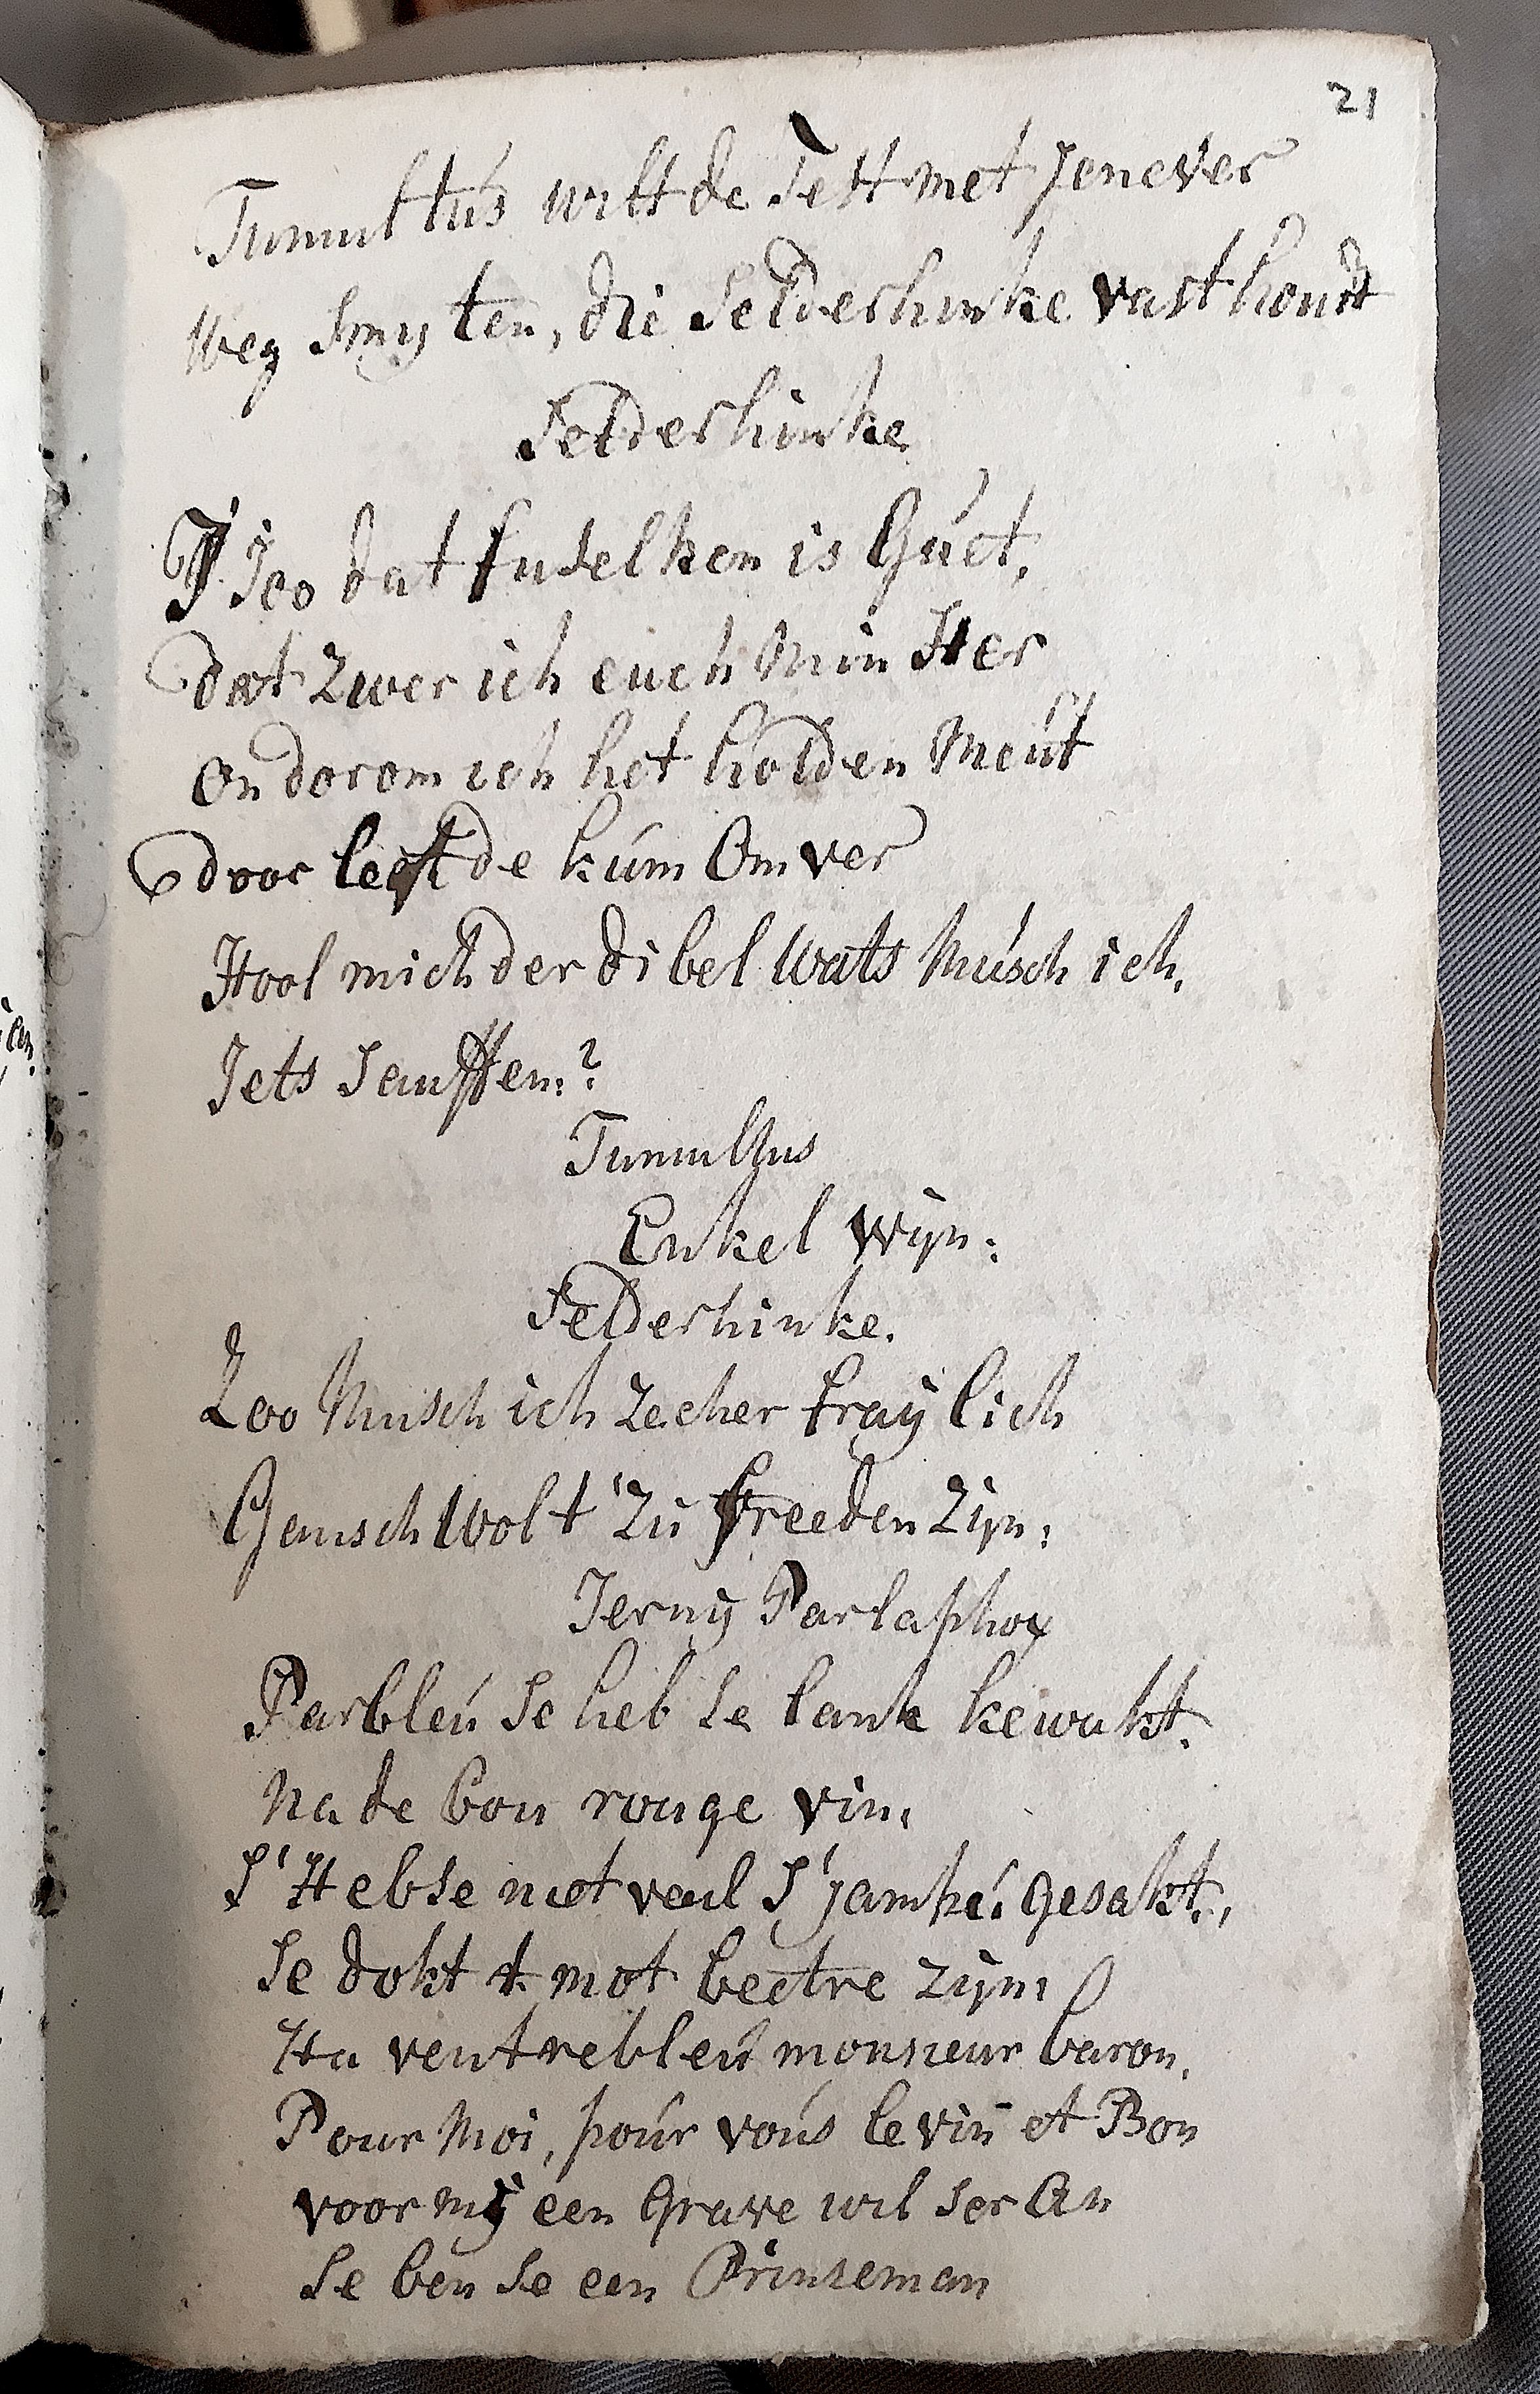 21
Tumultus wilt de Fett met Jenever
weg smyten, die Selderhinke vast houdt
Selderhinke
J Joo dat fuselken is Guet,
dat zwer ich euch Min Her
on dorom ich het holden Meut
door leefde kum Om ver
Hool mich der dibel wats Musch ich,
Jets Sauffen:?
Tumultus
Enkel wyn:
Selderhinke.
Zoo Musch ich zecher fraylich
Gansch Wolt zu freeden Zyn:
Jerny Parlaphox
Parbleu Se heb Se lank kewakt.
Na de bon rouge vin,
S'Hebse niet veul S'jamké gesakt,,
Se dokt t mot beetre zyn,
Ha ventrebleu monsieur baron,
Pour Moi, pour vous le vin et Bon
voor my een Grave wil ser An
Se ben Se een Prinseman